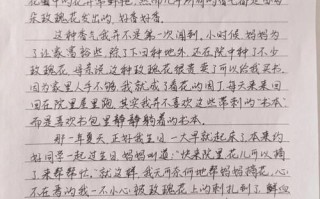 朵玫瑰花发出的,好香好香。
这种香气我并不是第一次闻到,小时候,妈妈为
了让家富裕些,除了下田种地外,还在院中种了不少
玫瑰花,母亲说,这种玫瑰花很贵卖了可以给我买书,
因为家里人手不够,我就成了看花的园丁每天来来回
回在院里屋里跑,其实我并不喜欢这些带刺的"书本"
而是喜欢书包里静静躺着的书本
那一年夏天,正好我生日,一大早就起床了,本来约
好同学一起过生日妈妈叫道:"快来院里花儿可以摘
了来帮帮忙。"就这样,我无奈何地帮妈妈摘花,心
不在焉的我一不小心被玫瑰花上的刺扎到了鲜血